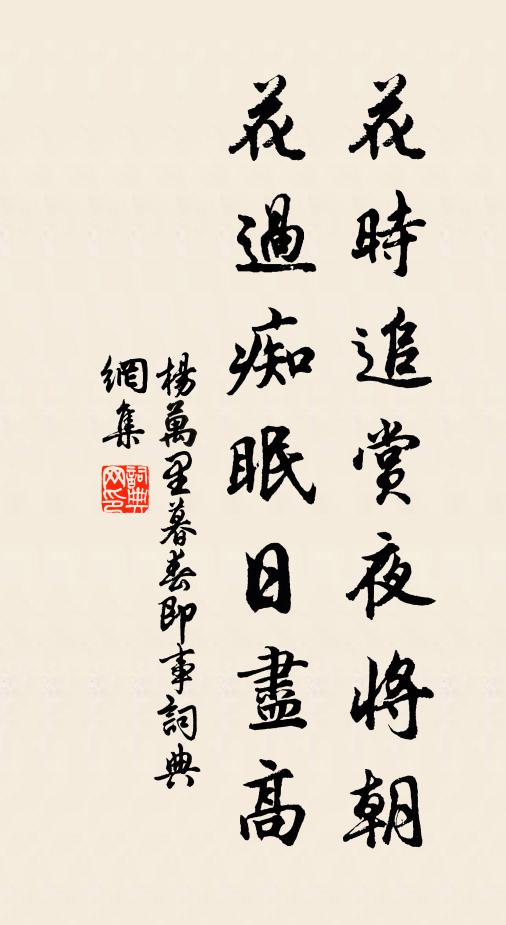 花時追賞夜將朝
花過痴眠日盡高
楊萬里暮春即事詞典
網集
詞典
网印